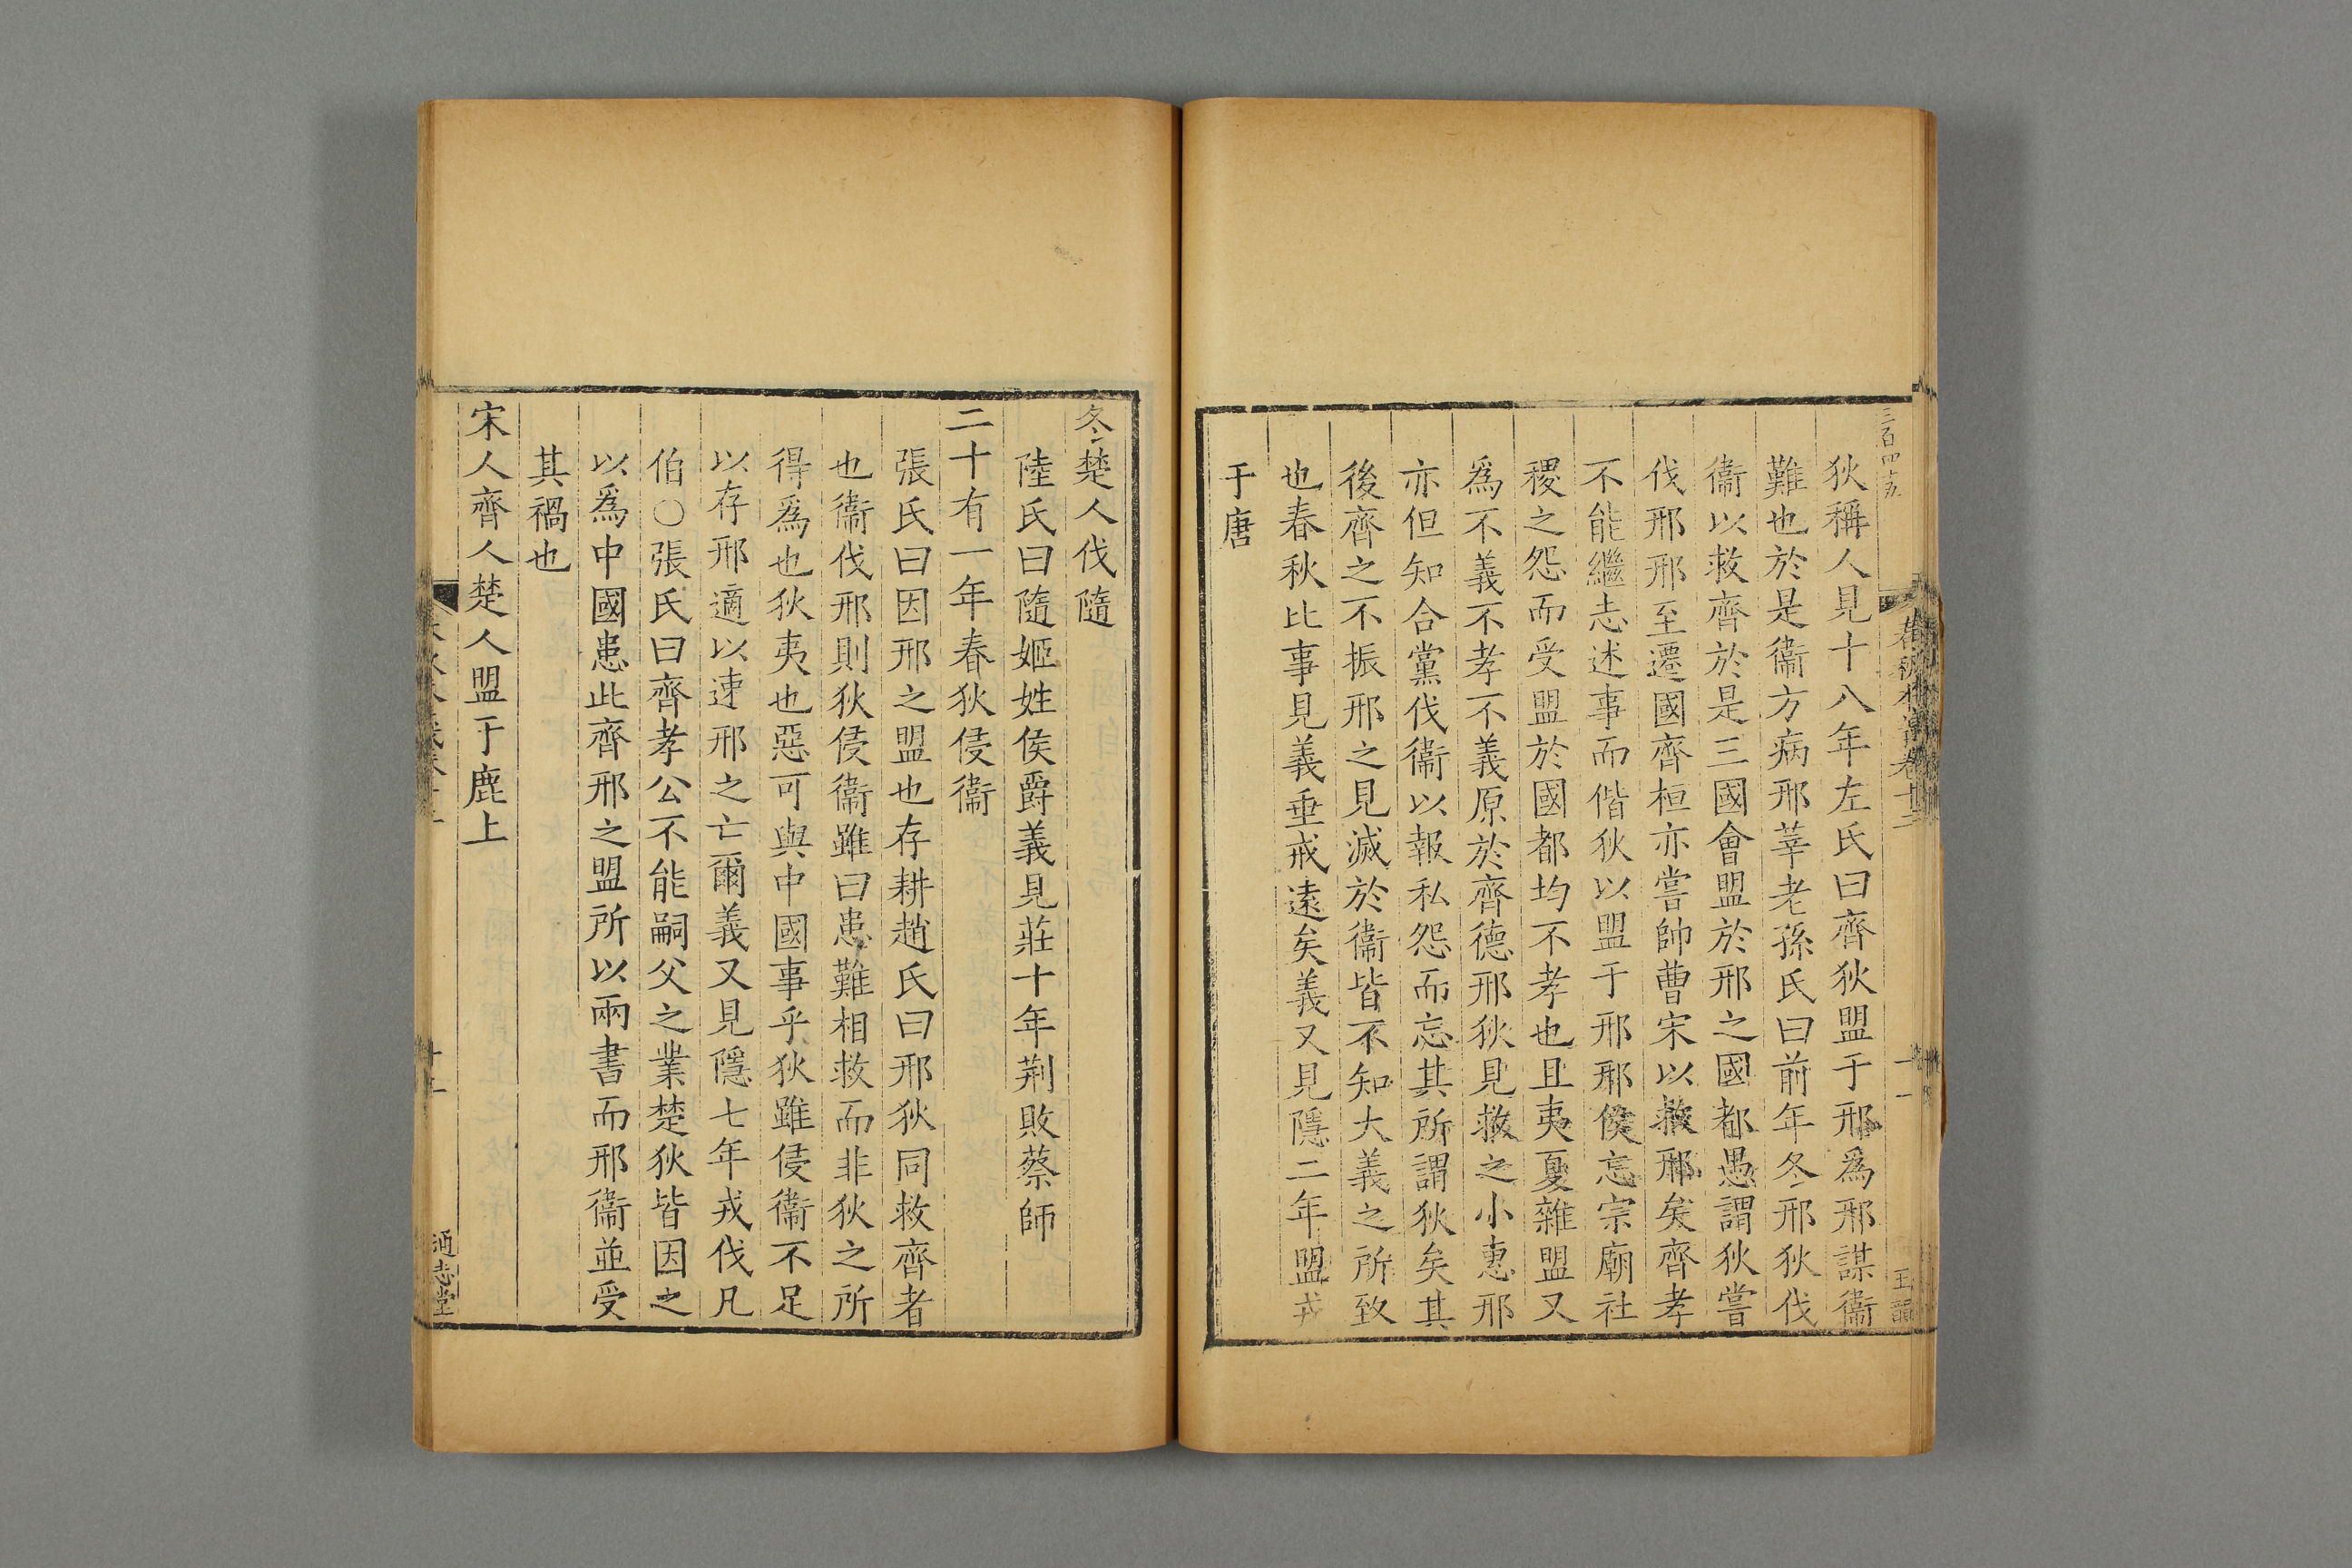 三百四十五
狄稱人見十八年左氏曰齊狄盟于邢爲邢謀衞
難也於是衞方病邢莘老孫氏曰前年冬邢狄伐
衞以救齊於是三國會盟於邢之國都愚謂狄嘗
伐邢邢至遷國齊桓亦嘗帥曹宋以救邢矣齊孝
不能繼志述事而偕狄以盟于邢邢侯忘宗廟社
稷之怨而受盟於國都均不孝也且夷夏雜盟又
爲不義不孝不義原於齊德邢狄見救之小惠邢
亦但知合黨伐衞以報私怨而忘其所謂狄矣其
後齊之不振邢之見滅於衞皆不知大義之所致
也春秋比事見義垂戒遠矣義又見隱二年盟戎
于唐
冬楚人伐隨
陸氏曰隨姬姓侯爵義見莊十年荆敗蔡師
二十有一年春狄侵衞
張氏曰因邢之盟也存耕趙氏曰邢狄同救齊者
也衞伐邢則狄侵衞雖曰患難相救而非狄之所
得爲也狄夷也惡可與中國事乎狄雖侵衞不足
以存邢適以速邢之亡爾義又見隱七年戎伐凡
伯○張氏曰齊孝公不能嗣父之業楚狄皆因之
以爲中國患此齊邢之盟所以兩書而邢衞並受
其禍也
宋人齊人楚人盟于鹿上
通志堂